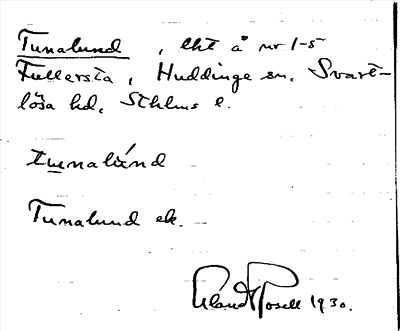 Tunalund, lht å nr 1-5
Fullersta, Huddinge sn, Svart-
lösa hd, Sthlms l.
tunalúnd
Tunalund ek.
Claud Rosell 1930.